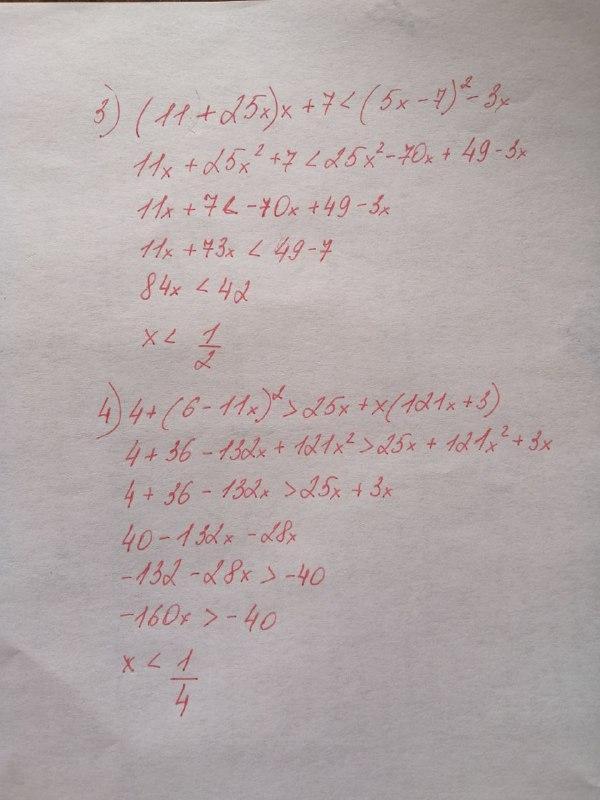 3) (11 + 25x)x + 7 < (5x - 7)² - 3x
11x + 25x² + 7 < 25x² - 70x + 49 - 3x
11x + 7 < -70x + 49 - 3x
11x + 73x < 49 - 7
84x < 42
x < 1/2
4) 4 + (6 - 11x)² > 25x + x(121x + 3)
4 + 36 - 132x + 121x² > 25x + 121x² + 3x
4 + 36 - 132x > 25x + 3x
40 - 132x - 28x
-132 - 28x > -40
-160x > -40
x < 1/4